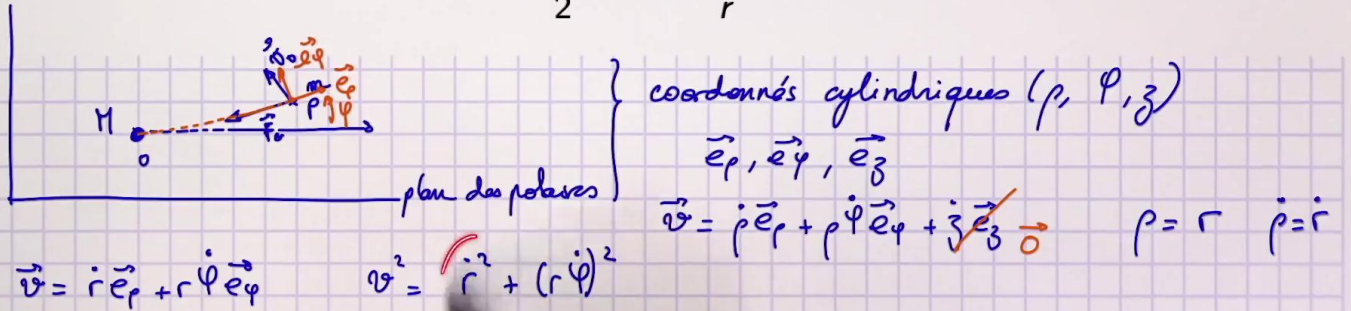 2 r
M
O
m
P
φ
e⃗ρ
e⃗φ
plan des polaires
coordonnés cylindriques (ρ, φ, z)
e⃗ρ, e⃗φ, e⃗z
v⃗ = ρ̇ e⃗ρ + ρ φ̇ e⃗φ + ż e⃗z 0⃗ ρ = r ρ̇ = ṙ
v⃗ = ṙ e⃗ρ + r φ̇ e⃗φ v² = ṙ² + (r φ̇)²